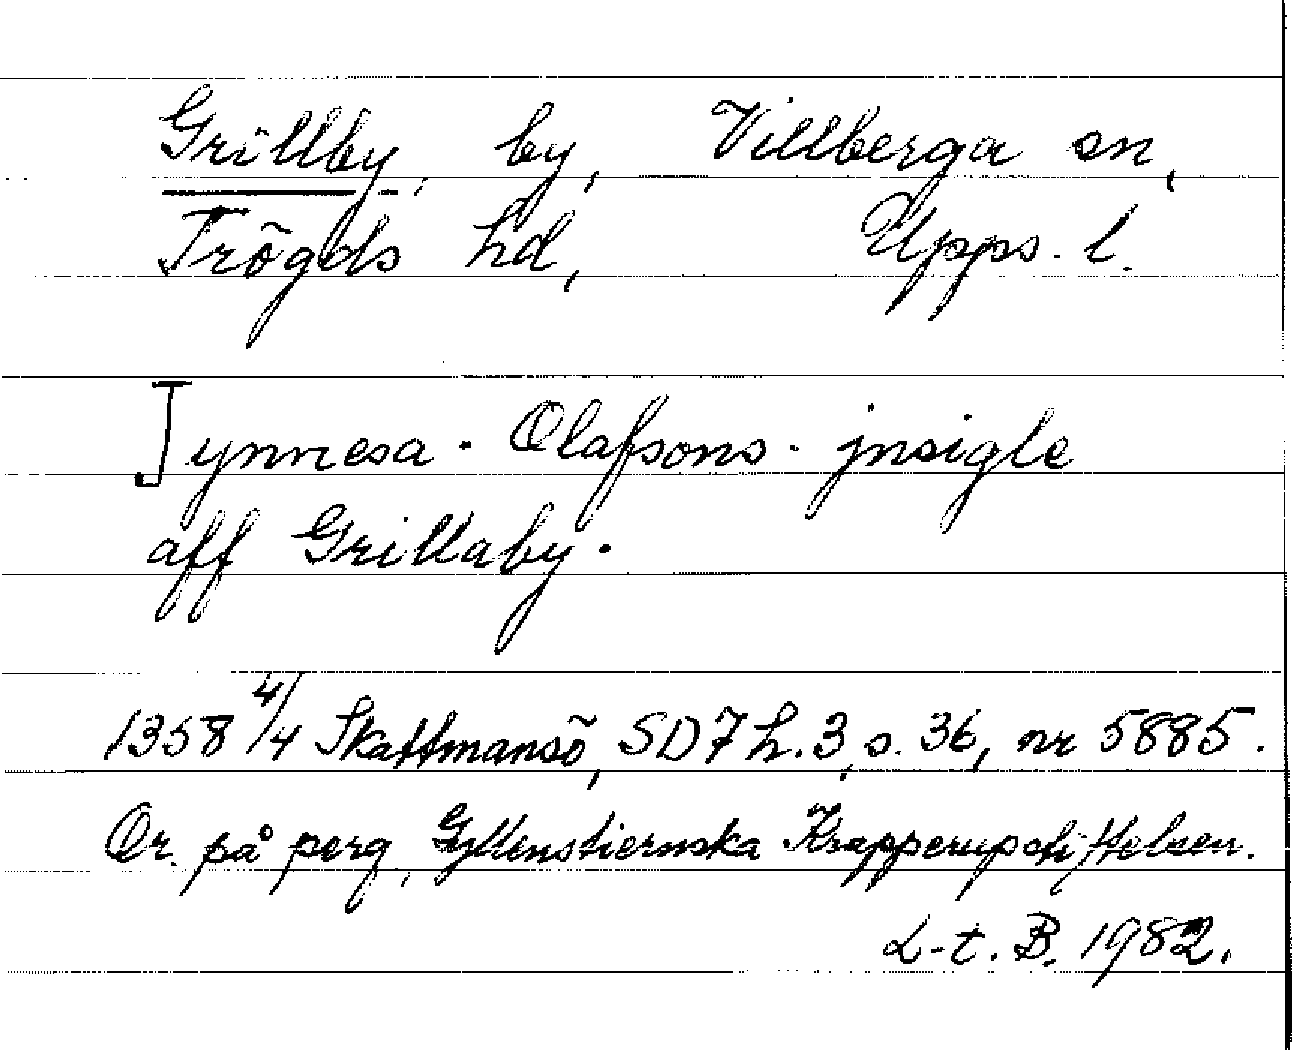 Grillby, by, Villberga sn,
Trögds hd, Upps. l.
Jynnesa · Olafsons · jnsigle
aff Grillaby ·
1358 4/4 Skattmansö, SD 7 h. 3, s. 36, nr 5885.
Or. på perg, Gyllenstiernska Krapperupstiftelsen.
L-t. B. 1982.